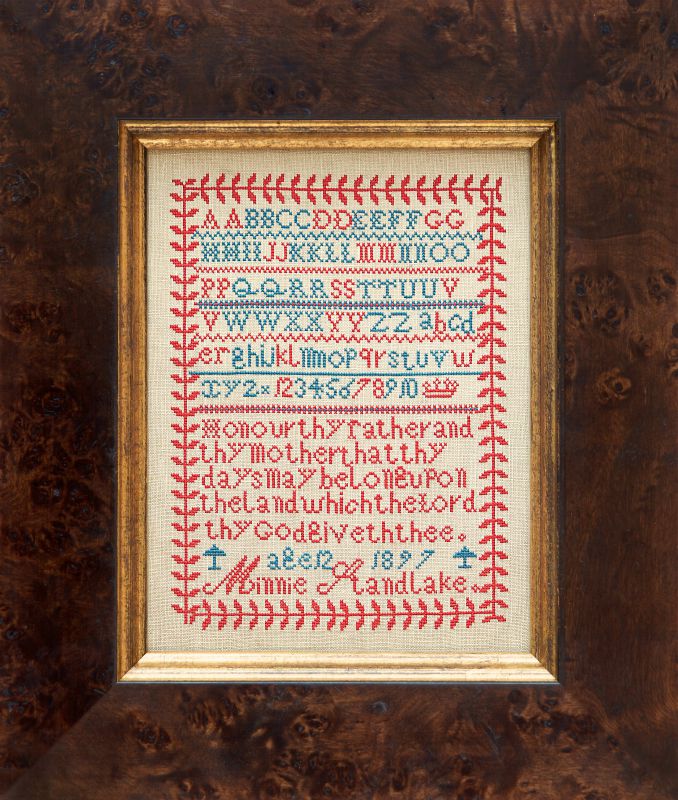 AABBCCDDEEFFGG
HHIIJJKKLLMMNNOO
PPQQRRSSTTUUV
VWWXXYYZZabcd
efghijklmnopqrstuvw
xyz 12345678910
Honourthyfatherand
thymotherthatthy
daysmaybelongupon
thelandwhichtheLord
thyGodgiveththee.
age12 1897
Minnie Handlake.